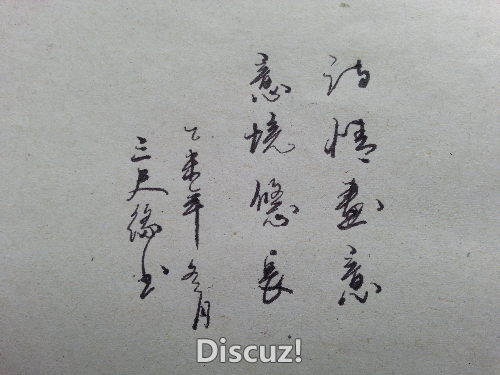 诗情画意
意境悠长
乙未年冬月
三尺缘书
Discuz!